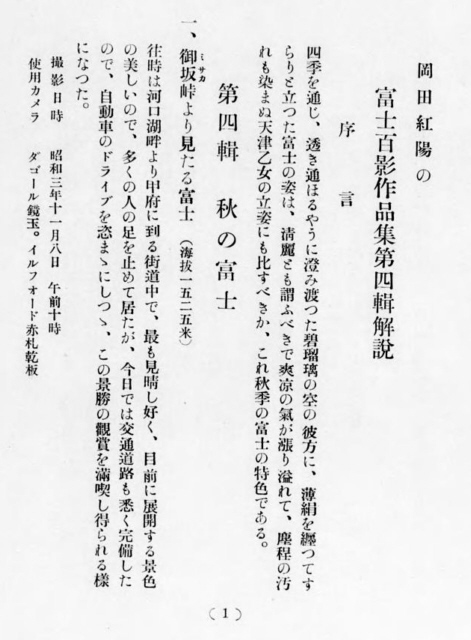 岡田紅陽の
富士百影作品集第四輯解說
序言
四季を通じ、透き通ほるやうに澄み渡つた碧瑠璃の空の彼方に、薄絹を纏つてす
らりと立つた富士の姿は、淸麗とも謂ふべきで爽凉の氣が漲り溢れて、塵程の汚
れも染まぬ天津乙女の立姿にも比すべきか、これ秋季の富士の特色である。
第四輯 秋の富士
一、御坂峠より見たる富士 (海拔一五二五米)
ミサカ
往時は河口湖畔より甲府に到る街道中で、最も見晴し好く、目前に展開する景色
の美しいので、多くの人の足を止めて居たが、今日では交通道路も悉く完備した
ので、自動車のドライブを恣まゝにしつゝ、この景勝の觀賞を滿喫し得られる樣
になつた。
撮影日時 昭和三年十一月八日 午前十時
使用カメラ ダゴール鏡玉。イルフオード赤札乾板
(1)